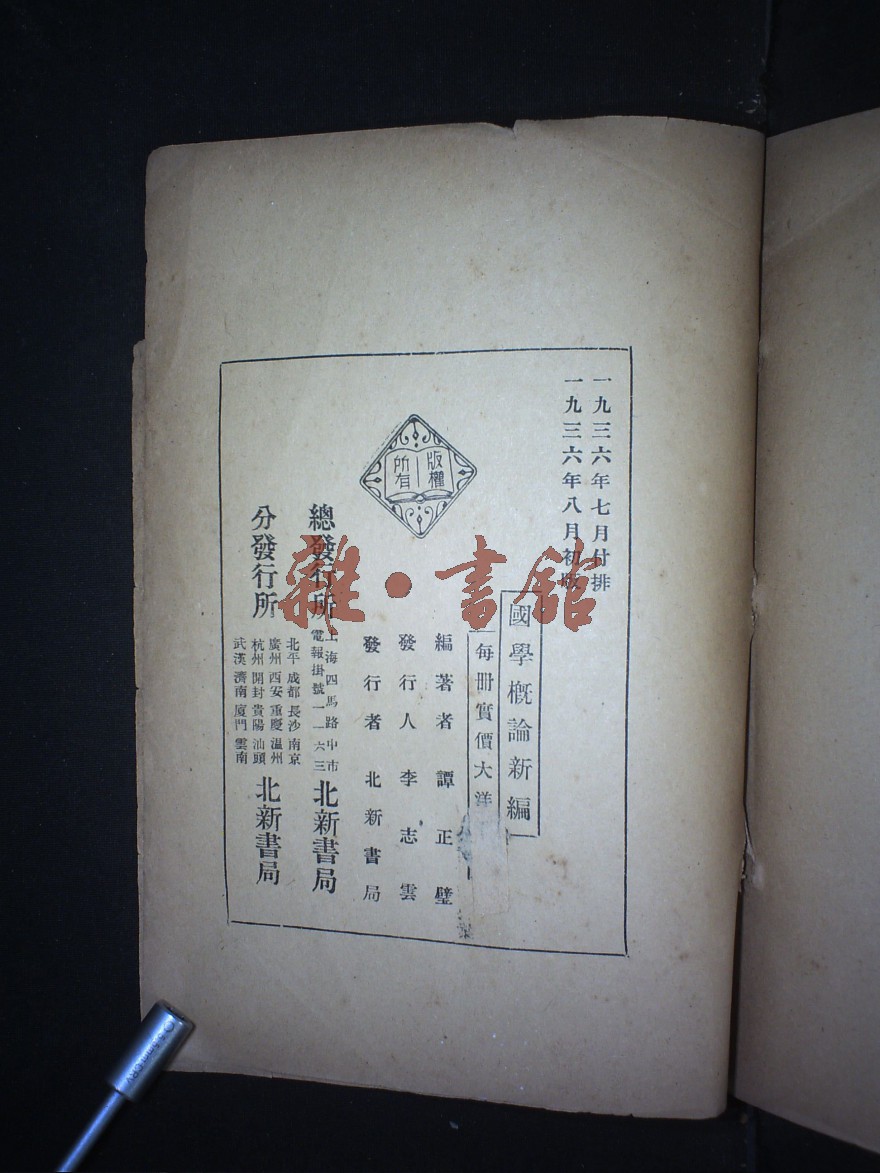 一九三六年七月付排
一九三六年八月初版
國學概論新編
每冊實價大洋
編著者 譚正璧
發行人 李志雲
發行者 北新書局
版權
所有
總發行所
上海四馬路中市
電報掛號一一六三
北新書局
分發行所
北平 成都 長沙 南京
廣州 西安 重慶 温州
杭州 開封 貴陽 汕頭
武漢 濟南 廈門 雲南
北新書局
雜·書館